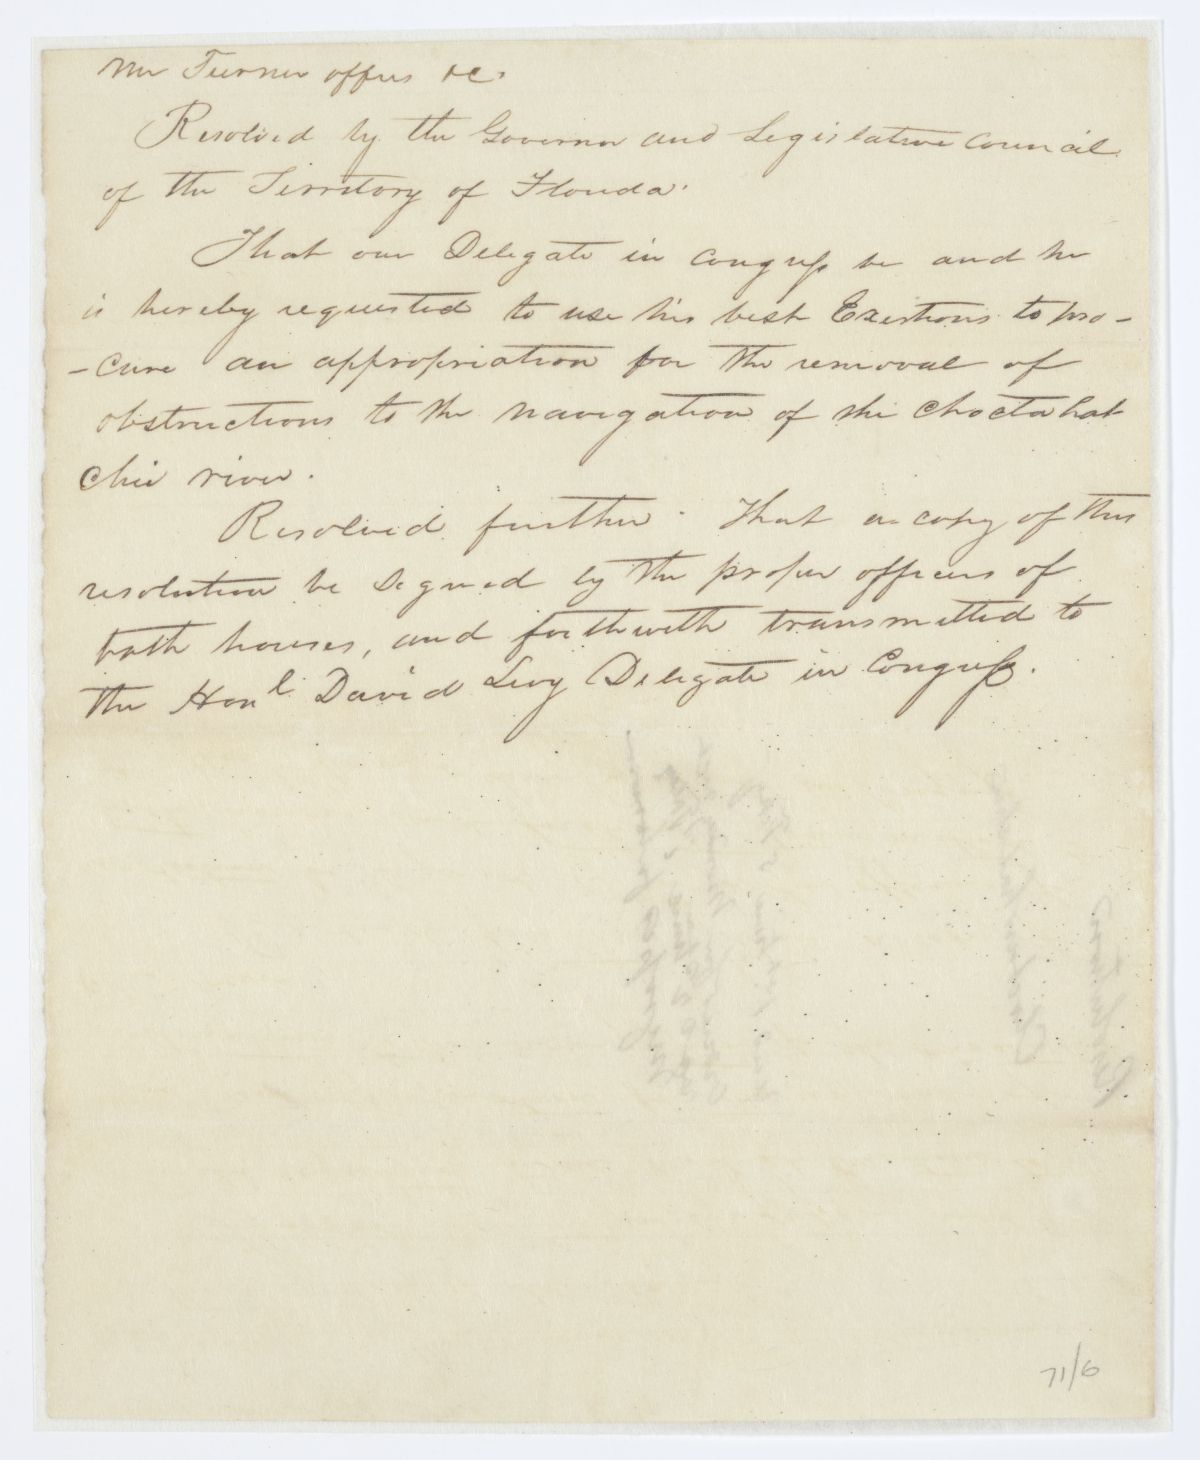 Mr Turner offers &c.
Resolved by the Governor and Legislative Council
of the Territory of Florida.
That our Delegate in Congress be and he
is hereby requested to use his best Exertions to pro-
-cure an appropriation for the removal of
obstructions to the navigation of the Choctahat
chie river.
Resolved further. That a copy of this
resolution be signed by the proper officers of
both houses, and forthwith transmitted to
the Honl. David Levy Delegate in Congress.
71/6